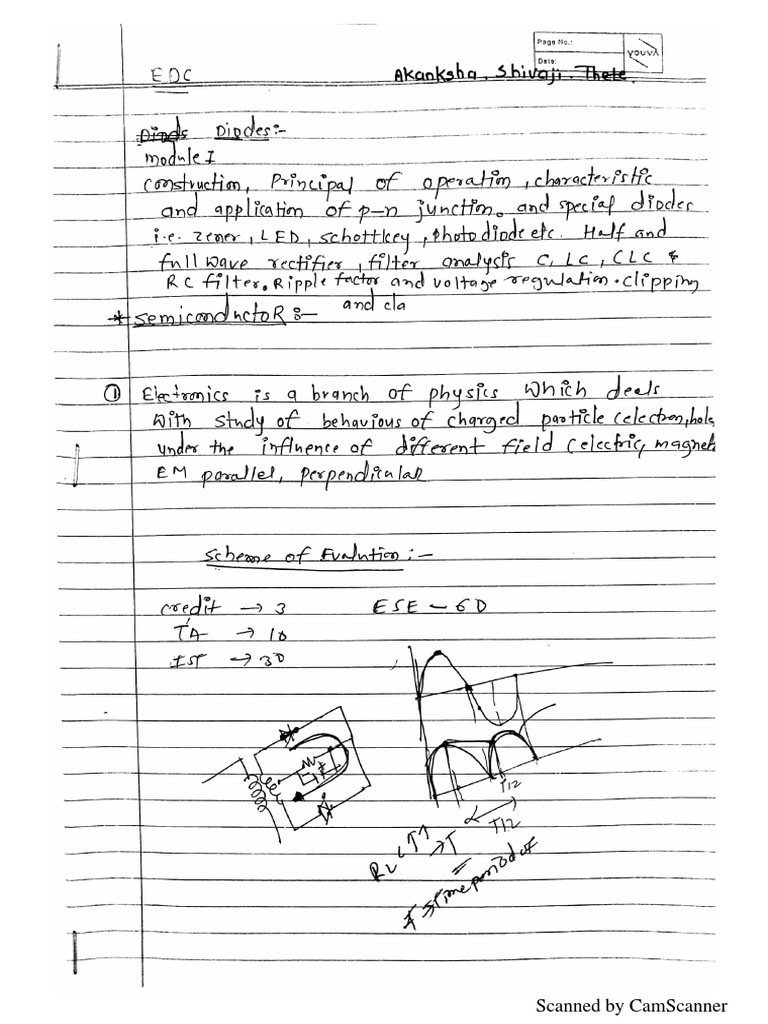 Page No.:
Date:
youva
EDC
Akanksha. Shivaji. Thete.
Diodes:-
module I
construction, Principal of operation, characteristic
and application of p-n junction. and special diodes
i.e. zener, LED, schottkey, photodiode etc. Half and
full wave rectifier, filter analysis C, LC, CLC &
RC filter. Ripple factor and voltage regulation. clipping
and cla
* semiconductoR:-
① Electronics is a branch of physics which deels
with study of behavious of charged particle (electron, hole
under the influence of different field (electric, magnet
EM parallel, perpendicular
scheme of Evalution:-
credit → 3 ESE - 60
TA → 10
IST → 30
T/2
T/2
RL
→ T
time period of
Scanned by CamScanner